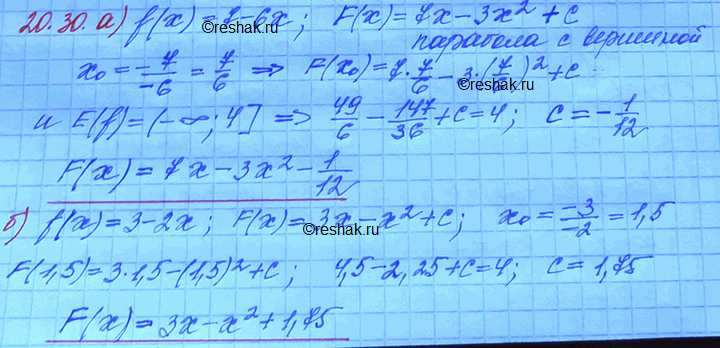 20.30. а) f(x) = 7 - 6x; F(x) = 7x - 3x² + c
парабола с вершиной
x₀ = -7/-6 = 7/6 ⇒ F(x₀) = 7·7/6 - 3·(7/6)² + c
и E(f) = (-∞; 4] ⇒ 49/6 - 147/36 + c = 4; c = -1/12
F(x) = 7x - 3x² - 1/12
б) f(x) = 3 - 2x; F(x) = 3x - x² + c; x₀ = -3/-2 = 1,5
F(1,5) = 3·1,5 - (1,5)² + c; 4,5 - 2,25 + c = 4; c = 1,75
F(x) = 3x - x² + 1,75
©reshak.ru
©reshak.ru
©reshak.ru
©reshak.ru
©reshak.ru
©reshak.ru